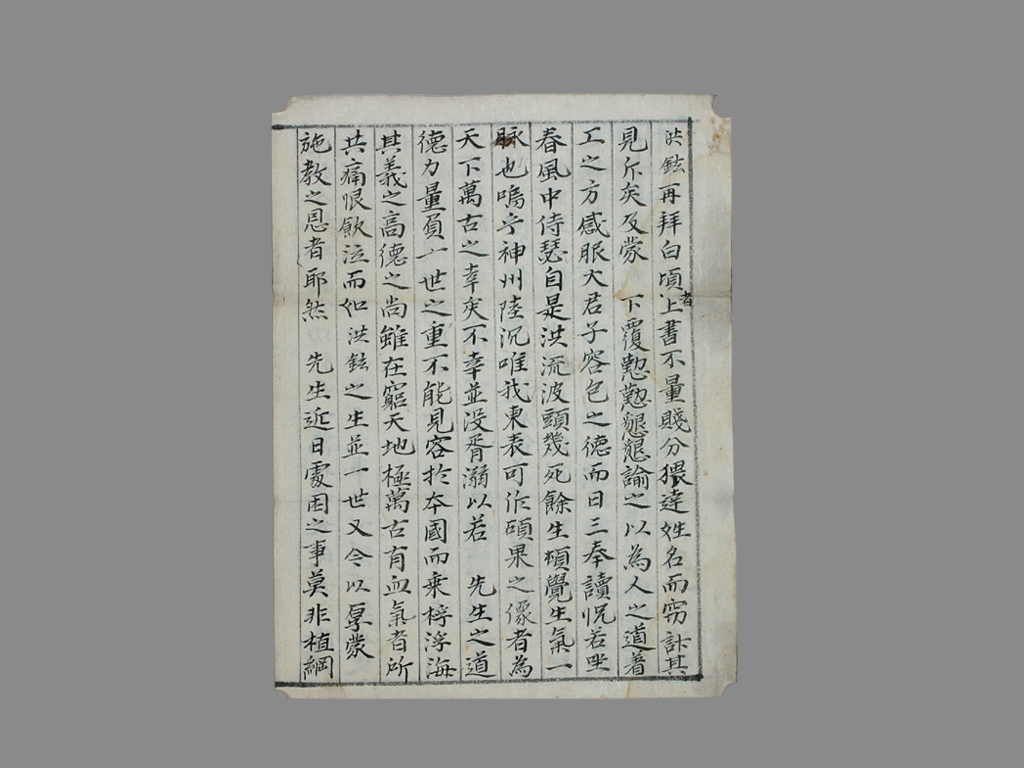 洪鉉再拜白頃者上書不量賤分猥達姓名而窃計其
見斥矣及蒙 下覆懃懃懇懇論之以為人之道着
工之方感服大君子容包之德而日三奉讀怳若坐
春風中侍瑟自是洪流波頭幾死餘生頓覺生氣一
脉也嗚乎神州陸沉唯我東表可作碩果之像者為
天下萬古之幸矣不幸並没胥溺以若 先生之道
德力量負一世之重不能見容於本國而乗桴浮海
其義之高德之尚雖在窮天地極萬古有血氣者所
共痛恨飮泣而如洪鉉之生並一世又今以厚蒙
施教之恩者耶然 先生近日處困之事莫非植綱